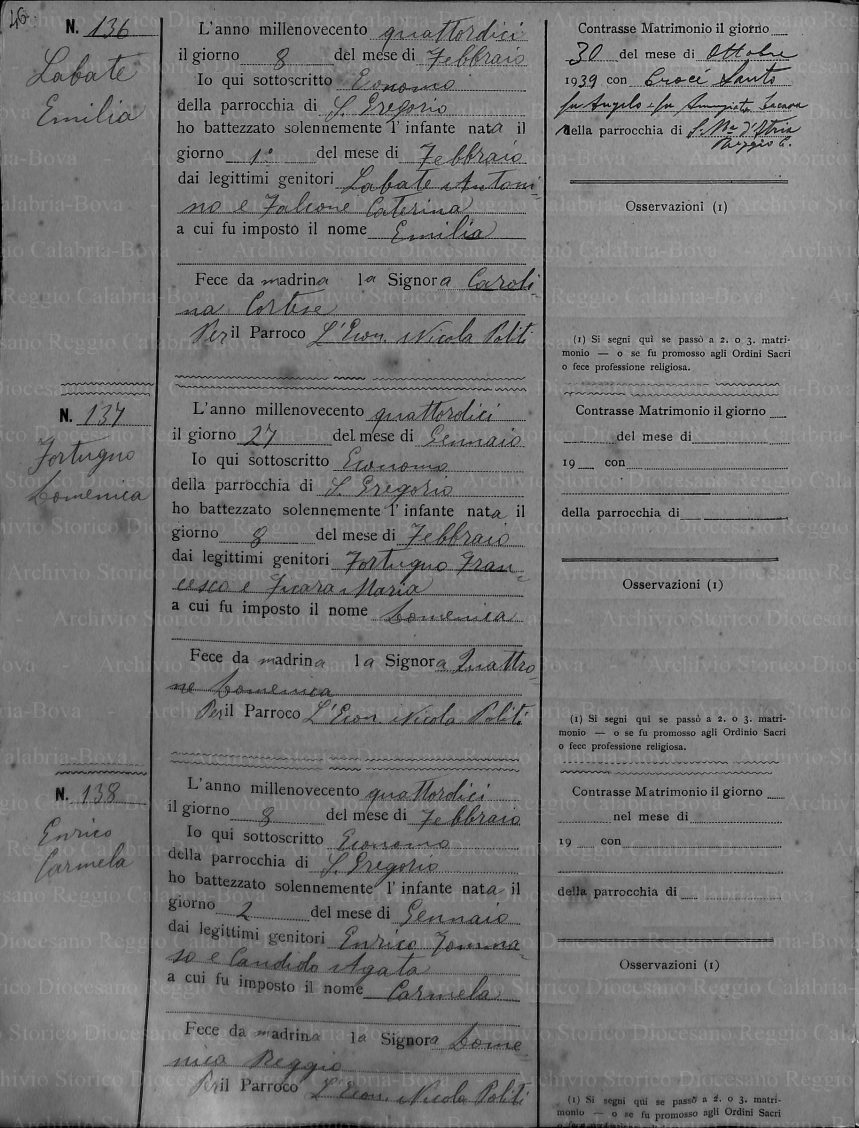 46
N. 136
Labate
Emilia
L'anno millenovecento quattordici
il giorno 8 del mese di Febbraio
Io qui sottoscritto Economo
della parrocchia di S. Gregorio
ho battezzato solennemente l'infante nata il
giorno 1º del mese di Febbraio
dai legittimi genitori Labate Antoni-
no e Falcone Caterina
a cui fu imposto il nome Emilia
Fece da madrina la Signora Caroli-
na Cortese
Per il Parroco L'Econ. Nicola Politi
Contrasse Matrimonio il giorno
30 del mese di Ottobre
1939 con Croci Santo
fu Angelo e fu
della parrocchia di S. Ma d'Itria
Reggio C.
Osservazioni (1)
(1) Si segni quì se passò a 2. o 3. matri-
monio — o se fu promosso agli Ordini Sacri
o fece professione religiosa.
N. 137
Fortugno
Domenica
L'anno millenovecento quattordici
il giorno 27 del mese di Gennaio
Io qui sottoscritto Economo
della parrocchia di S. Gregorio
ho battezzato solennemente l'infante nata il
giorno 8 del mese di Febbraio
dai legittimi genitori Fortugno Fran-
cesco e Ficara Maria
a cui fu imposto il nome Domenica
Fece da madrina la Signora Quattro-
ne Domenica
Per il Parroco L'Econ. Nicola Politi
Contrasse Matrimonio il giorno
del mese di
19 con
della parrocchia di
Osservazioni (1)
(1) Si segni quì se passò a 2. o 3. matri-
monio — o se fu promosso agli Ordinio Sacri
o fece professione religiosa.
N. 138
Enrico
Carmela
L'anno millenovecento quattordici
il giorno 8 del mese di Febbraio
Io qui sottoscritto Economo
della parrocchia di S. Gregorio
ho battezzato solennemente l'infante nata il
giorno 2 del mese di Gennaio
dai legittimi genitori Enrico Tomma-
so e Candido Agata
a cui fu imposto il nome Carmela
Fece da madrina la Signora Dome-
nica Reggio
Per il Parroco L'Econ. Nicola Politi
Contrasse Matrimonio il giorno
nel mese di
19 con
della parrocchia di
Osservazioni (1)
(1) Si segni quì se passò a 2. o 3. matri-
monio — o se fu promosso agli Ordini Sacri
o fece professione religiosa.
Archivio Storico Diocesano Reggio Calabria-Bova